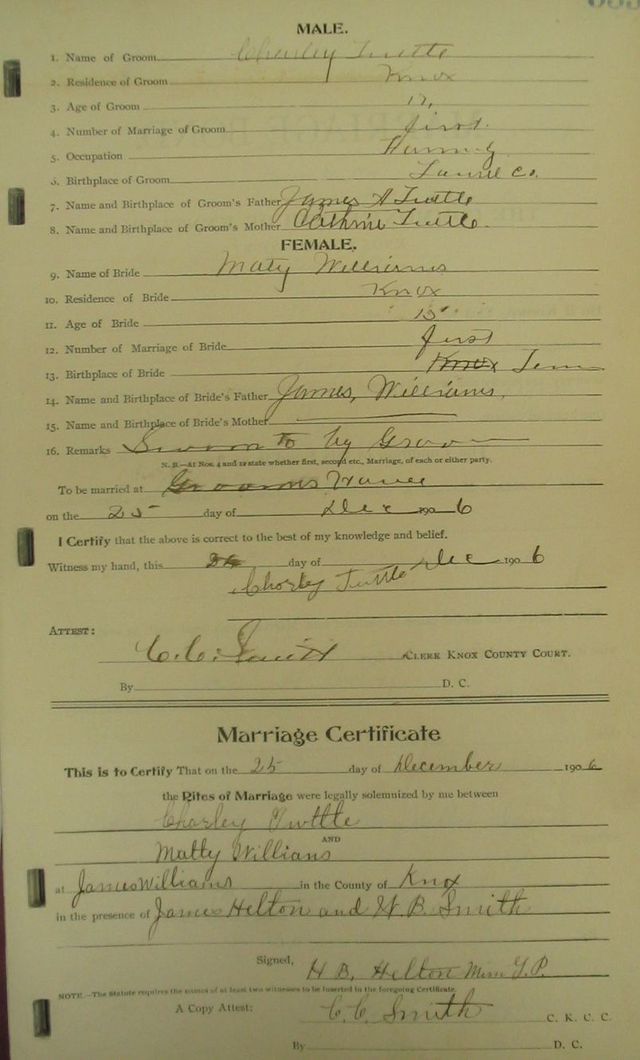 MALE.
1. Name of Groom Charley Tuttle
2. Residence of Groom Knox
3. Age of Groom
4. Number of Marriage of Groom first.
5. Occupation
6. Birthplace of Groom Laurel Co.
7. Name and Birthplace of Groom's Father James A Tuttle
8. Name and Birthplace of Groom's Mother Cathrine Tuttle.
FEMALE.
9. Name of Bride Maty Williams
10. Residence of Bride Knox
11. Age of Bride 15
12. Number of Marriage of Bride first
13. Birthplace of Bride Knox Tenn
14. Name and Birthplace of Bride's Father James, Williams,
15. Name and Birthplace of Bride's Mother
16. Remarks Sworn to by Groom
N. B.—At Nos. 4 and 12 state whether first, second etc., Marriage, of each or either party.
To be married at Grooms
on the 25 day of Dec 1906
I Certify that the above is correct to the best of my knowledge and belief.
Witness my hand, this day of Dec 1906
Charley Tuttle
ATTEST:
C. C. Smith CLERK KNOX COUNTY COURT.
By D. C.
Marriage Certificate
This is to Certify That on the 25 day of December 1906
the Rites of Marriage were legally solemnized by me between
Charley Tuttle
AND
Matty Willians
at James Williams in the County of Knox
in the presence of James Helton and W. B. Smith
Signed, H B. Helton
NOTE.—The Statute requires the names of at least two witnesses to be inserted in the foregoing Certificate.
A Copy Attest: C. C. Smith C. K. C. C.
By D. C.